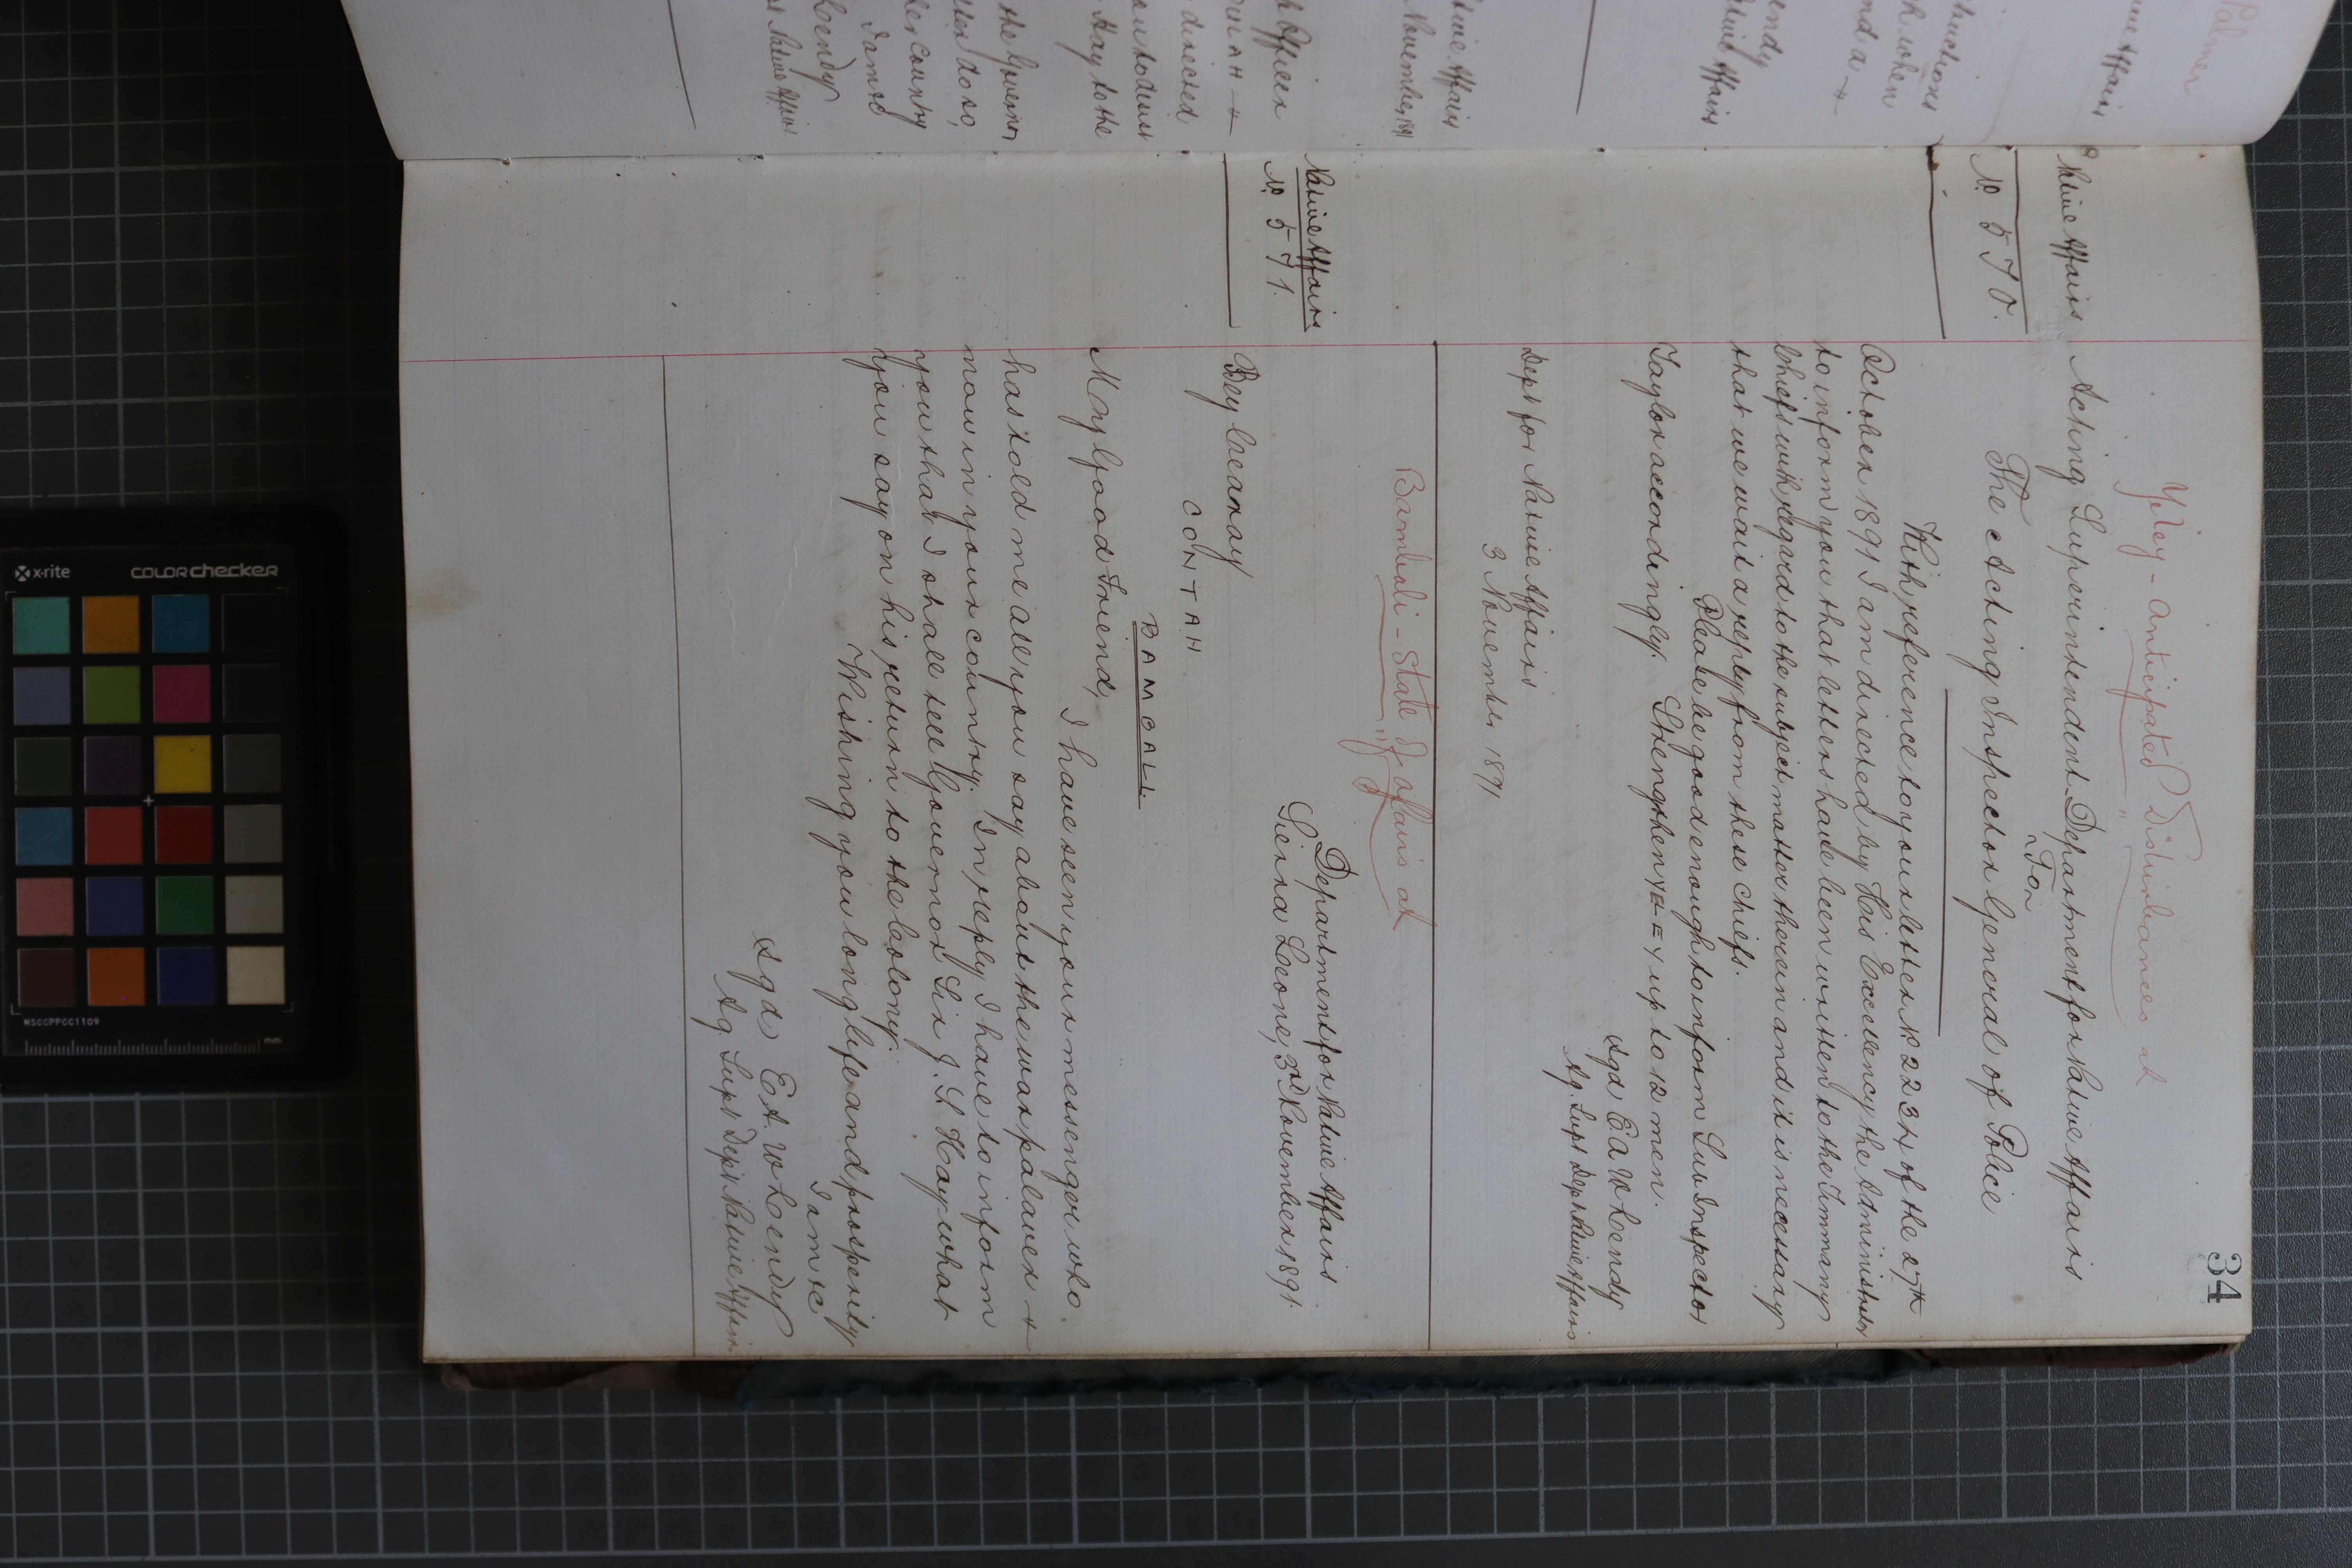 34
Yeley - Anticipated Disturbances at
Native Affairs Acting Superintendent Department for Native Affairs
For
No 570. The Acting Inspector General of Police
With reference to your letter No 223H of the 27th
October 1891 I am directed by His Excellency the Administrator
to inform you that letters have been written to the Timmany
Chiefs with regard to the subject matter therein and it is necessary
that we wait a reply from these chiefs.
Please be good enough to inform Sub Inspector
Taylor accordingly. Strengthen up to 12 men.
Sgd E A W Lendy
Ag. Supt Dept Native Affairs
Dept for Native Affairs
3 November 1891
Bambali - State of affairs at
Native Affairs
No 571.
Department for Native Affairs
Sierra Leone, 3rd November 1891.
Bey Cheanay
CONTAH
BAMBALI
My Good Friend,
I have seen your messenger who
has told me all you say about the war palaver +
now in your country. In reply I have to inform
you that I shall tell Governor Sir J. S Hay what
you say on his return to the Colony.
Wishing you long life and prosperity
I am &c
Sgd E A W Lendy
Ag. Supt Dept Native Affairs
Palmer
Native Affairs
structions
when
and a +
Lendy
Native Affairs
Native Affairs
November, 1891
Officer
directed
Hay to the
the Governor
do so,
country
I am &c
Lendy
Native Affairs
x-rite
colorchecker
MSCCPPCC1109
mm